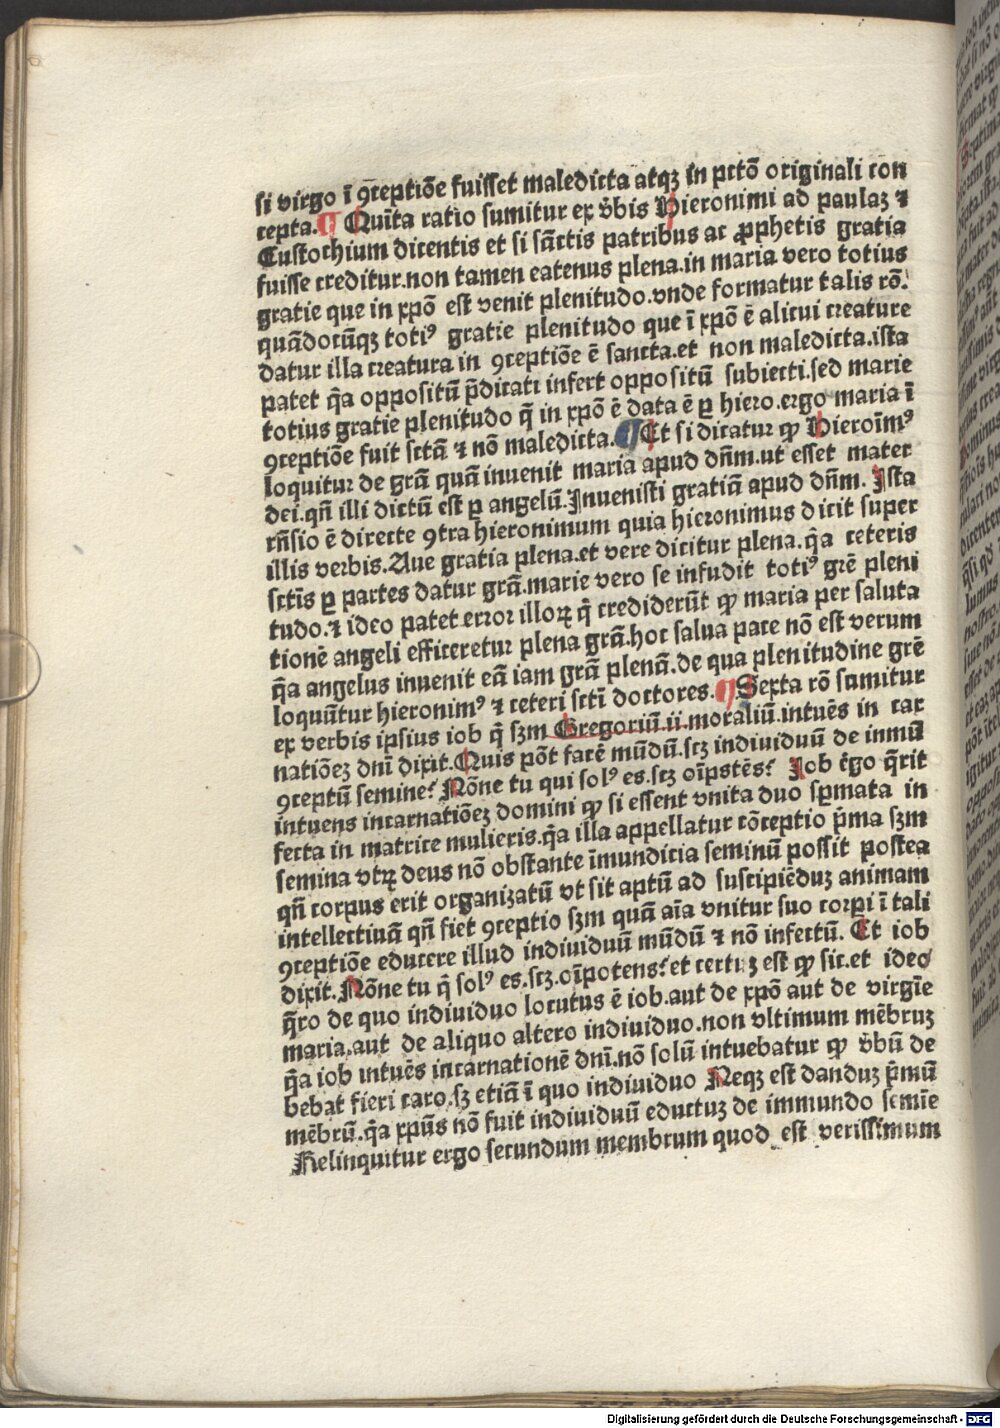 si virgo ī ꝯceptiōe fuisset maledicta atqꝫ in pctō originali con
cepta.¶ Quīta ratio sumitur ex v̄bis Hieronimi ad paulaꝫ ⁊
Eustochium dicentis et si sāctis patribus ac ꝓphetis gratia
fuisse creditur.non tamen eatenus plena.in maria vero totius
gratie que in xpō est venit plenitudo.vnde formatur talis rō.
quādocūqꝫ totiꝰ gratie plenitudo que ī xpō ē alicui creature
datur illa creatura in ꝯceptiōe ē sancta.et non maledicta.ista
patet q̄a oppositū p̄dicati infert oppositū subiecti.sed marie
totius gratie plenitudo q̄ in xpō ē data ē ꝑ hiero.ergo maria ī
ꝯceptiōe fuit sctā ⁊ nō maledicta.¶Et si dicatur ꝙ Hieroīmꝰ
loquitur de grā quā inuenit maria apud dn̄m.ut esset mater
dei.qn̄ illi dictū est ꝑ angelū.Inuenisti gratiā apud dn̄m. Ista
rn̄sio ē directe ꝯtra hieronimum quia hieronimus dicit super
illis verbis.Aue gratia plena.et vere dicitur plena.q̄a ceteris
sctīs ꝑ partes datur grā.marie vero se infudit totiꝰ grē pleni
tudo.⁊ ideo patet error illoꝝ q̄ crediderūt ꝙ maria per saluta
tionē angeli efficeretur plena grā.hoc salua pace nō est verum
q̄a angelus inuenit eā iam grā plenā.de qua plenitudine grē
loquūtur hieronimꝰ ⁊ ceteri sctī doctores.¶.Sexta rō sumitur
ex verbis ipsius iob q̄ sꝫm Gregoriū.ii.moraliū.intuēs in car
natiōeꝫ dnī dixit.Quis pōt facē mūdū.scꝫ indiuiduū de inmū
ꝯceptū semine? Nōne tu qui solꝰ es.scꝫ oīpstēs? Iob ēgo q̄rit
intuens incarnatiōeꝫ domini ꝙ si essent vnita duo spmata in
fecta in matrice mulieris.q̄a illa appellatur cōceptio p̄ma sꝫm
semina vtꝝ deus nō obstante īmundicia seminū possit postea
qn̄ corpus erit organizatū vt sit aptū ad suscipiēduꝫ animam
intellectiuā qn̄ fiet ꝯceptio sꝫm quā aīa vnitur suo corpi ī tali
ꝯceptiōe educere illud indiuiduū mūdū ⁊ nō infectū. Et iob
dixit.Nōne tu q̄ solꝰ es.scꝫ.oīpotens?et certuꝫ est ꝙ sic.et ideo
q̄ro de quo indiuiduo locutus ē iob.aut de xpō aut de virgīe
maria.aut de aliquo altero indiuiduo.non vltimum mēbruꝫ
q̄a iob intuēs incarnationē dnī.nō solū intuebatur ꝙ v̄bū de
bebat fieri caro.sꝫ etiā ī quo indiuiduo Neqꝫ est danduꝫ p̄mū
mēbrū.q̄a xpūs nō fuit indiuiduū eductuꝫ de immundo semīe
Relinquitur ergo secundum membrum quod est verissimum
Digitalisierung gefördert durch die Deutsche Forschungsgemeinschaft - DFG